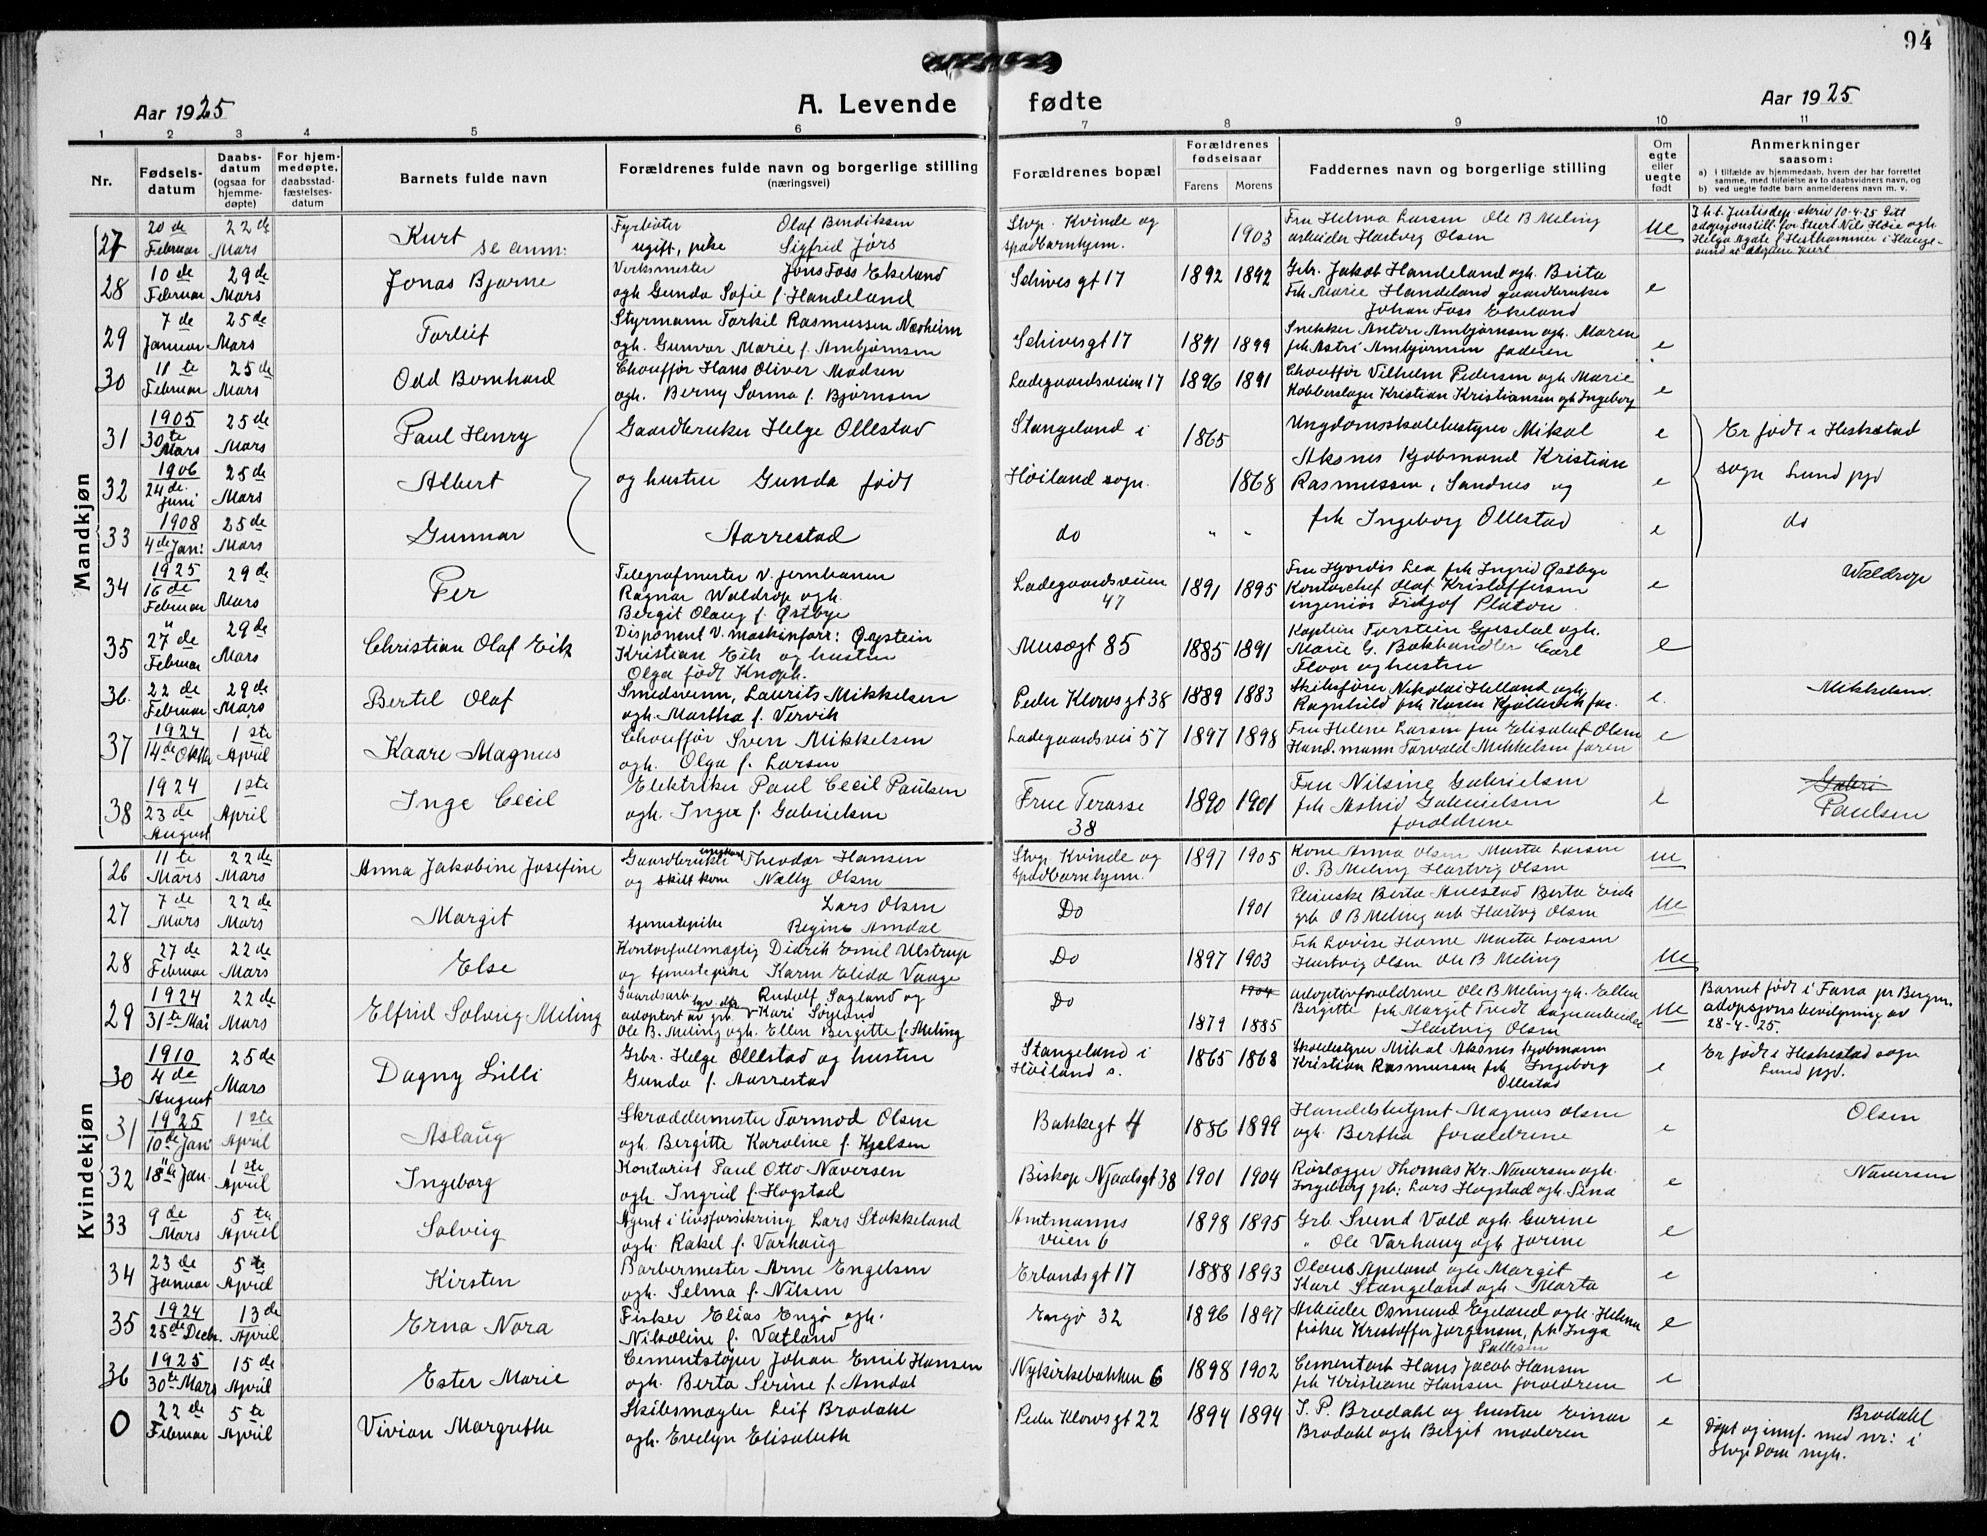 94
Aar 1925
A. Levende fødte
Aar 1925
1 2 3 4 5 6 7 8 9 10 11
Nr.
Fødsels-datum
Daabs-datum (ogsaa for hjemme-døpte)
For hjem-medøpte, daabsstad-fæstelses-datum
Barnets fulde navn
Forældrenes fulde navn og borgerlige stilling (næringsvei)
Forældrenes bopæl
Forældrenes fødselsaar
Farens Morens
Faddernes navn og borgerlige stilling
Om egte eller uegte født
Anmerkninger saasom:
a) i tilfælde av hjemmedaab, hvem der har forrettet samme, med tilføielse av to daabsvidners navn, og
b) ved uegte fødte barn anmelderens navn m. v.
Mandkjøn
27 20de Februar 22de Mars Kurt se anm: Fyrbøter Olaf Bendiksen
ugift, pike Sigfrid Jørs
Stvg. Kvinde og spædbarnhjem. 1903
Fru Helma Larsen Ole B Meling
arbeider Hartvig Olsen
ue
I h.t. Justisdep. skriv 10-4-25 Gitt
28 10de Februar 29de Mars Jonas Bjarne
Verksmester Jons Foss Ekeland
ogh Gunda Sofie f. Handeland
Schives gt 17 1892 1892
Grb. Jakob Handeland ogh. Brita
Frk Marie Handeland gaardbruker
Johan Foss Ekeland
e
29 7de Januar 25de Mars Torleif
Styrmann Torkil Rasmussen Næsheim
ogh. Gunvor Marie f. Ambjørnsen
Schives gt 17 1891 1899
Snekker Anton Ambjørnsen ogh. Maren
frk Astri Ambjørnsen faderen
e
30 11te Februar 25de Mars Odd Bernhard
Chouffør Hans Oliver Madsen
ogh. Berny Sanna f. Bjørnsen
Ladegaardsveien 17 1896 1891
Chouffør Vilhelm Pedersen ogh Marie
Kobberslager Kristian Kristiansen ogh Ingeborg
e
31 1905 30te Mars 25de Mars Paul Henry
Gaardbruker Helge Ollestad
Stangeland i 1865
Ungdomsskolebestyrer Mikal
e
Er født i Heskestad
32 1906 24de Juni 25de Mars Albert
og hustru Gunda født
Høiland sogn. 1868
Aksnes Kjøbmand Kristian
Rasmussen, Sandnes og
e
sogn Lund pgd
33 1908 4de Jan: 25de Mars Gunnar
Aarrestad
do " "
frk Ingeborg Ollestad
e
do
34 1925 16de Februar 29de Mars Per
Telegrafmester v. jernbanen
Ragnar Waldrop ogh.
Bergit Olaug f. Østbye
Ladegaardsveien 47 1891 1895
Fru Hjordis Lea frk Ingrid Østbye
Kontorchef Olaf Kristoffersen
ingeniør Fridjof Platou
e
Waldrop
35 " 27de Februar 29de Mars Christian Olaf Eik
Disponent v. maskinforr: Øystein
Kristian Eik og hustru
Olga født Knoph.
Musægt 85 1885 1891
Kaptein Torstein Gjesdal ogh.
Marie G. Bokhandler Carl
Floor og hustru
e
36. 22de Februar 29de Mars Bertil Olaf
Smedsvenn, Laurits Mikkelsen
ogh. Martha f. Vervik
Peder Klows gt 38 1889 1883
Skibsfører Nikolai Helland ogh.
e.
Mikkelsen.
37 1924 14de Oktbr 1ste April Kaare Magnus
Chouffør Sven Mikkelsen
ogh. Olga f. Larsen
Ladegaardsvei 57 1897 1898
Fru Helene Larsen fru Elisabet Olsen
Hand.mann Torvald Mikkelsen faren
e
38 1924 23de August 1ste April Inge Cecil
Elektriker Paul Cecil Paulsen
ogh. Inga f. Gabrielsen
Frue Terasse 38 1890 1901
Fru Nilsine Gabrielsen
frk Astrid Gabrielsen
foreldrene
e
Gabri
Paulsen
Kvindekjøn
26 11te Mars 22de Mars Anna Jakobine Josefine
Gaardbruker ungkarl Theodor Hansen
og skilt kone Nelly Olsen
Stvg. Kvinde og spædbarnhjem. 1897 1905
Kone Anna Olsen Marta Larsen
O. B Meling Hartvig Olsen
ue
27 7de Mars 22de Mars Margit
Lars Olsen
tjenestepike Regine Amdal
Do 1901
Pleierske Berta Auestad Berta Eide
grb O B Meling arb Hartvig Olsen
ue
28 27de Februar 22de Mars Else
Kontorfuldmægtig Didrik Emil Ulstrup
og tjenestepike Karen Elida Vaage
Do 1897 1903
Frk Lovise Horne Marta Larsen
Hartvig Olsen Ole B Meling
ue
29 1924 31te Mai 22de Mars Elfrid Solveig Meling
Gaardsarb Rudolf Sagland og
adoptert av grb. Kari Søyland
Ole B. Meling ogh. Ellen Bergitte f. Meling
Do 1904
1879 1885
adoptivforældrene Ole B Meling gh. Ellen
Bergitte frk Margit Tveidt
Hartvig Olsen
ue
Barnet født i Fana pr Bergen
adopsjonsbevilgning av
28-4-25.
30 1910 4de August 25de Mars Dagny Lilli
Grbr. Helge Ollestad og hustru
Gunda f. Aarrestad
Stangeland i Høiland s. 1865 1868
Skolestyrer Mikal Aksnes kjøbmann
Kristian Rasmussen frk Ingeborg
Ollestad
e
Er født i Heskestad sogn
Lund pgd.
31 1925 10de Jan 1ste April Aslaug
Skræddermester Tormod Olsen
ogh. Bergitte Karoline f. Kjelsen
Bakkegt 4 1886 1899
Handelsbetjent Magnus Olsen
ogh. Bertha foreldrene
e
Olsen
32 18" Jan. 1ste April Ingeborg
Kontorist Paul Otto Naversen
ogh. Ingrid f. Hogstad
Biskop Njaalsgt 38 1901 1904
Rørlægger Thomas Kr. Naversen ogh.
Ingeborg grb: Lars Hogstad ogh. Sina
e
Naversen
33 9de Mars 5te April Solveig
Agent i livsforsikring Lars Stokkeland
ogh. Rakel f. Varhaug
Amtmanns veien 6 1898 1895
Grb. Svend Vold ogh. Gurine
" Ole Varhaug ogh Jorine
e
34 23de Januar 5te April Kirsten
Barbermester Arne Engelsen
ogh. Selma f. Nilsen
Erlandsgt 17 1888 1893
Olaus Apeland ogh Margit
Karl Stangeland ogh Marta
e
35 1924 25de Decbr. 13de April Erna Nora
Fisker Elias Engø ogh.
Nikoline f. Vatland
Engø 32 1896 1897
Arbeider Osmund Egeland ogh. Helena
fisker Kristoffer Jørgensen, frk Inga
Pallesen
e
36 1925 30te Mars 15de April Ester Marie
Cementstøper Johan Emil Hansen
ogh. Berta Serine f. Amdal
Nykirkebakken 6 1898 1902
Cementarb Hans Jacob Hansen
frk Kristiane Hansen foreldrene
e
0 22de Februar 5te April Vivian Margrethe
Skibsmægler Leif Brodahl
ogh. Evelyn Elisabeth
Peder Klows gt 22 1894 1894
J. P. Brodahl og hustru Einar
Brodahl ogh Bergit moderen
e
Brodahl
Døpt og innf. med nr: i
Stvgr Dom mgh.